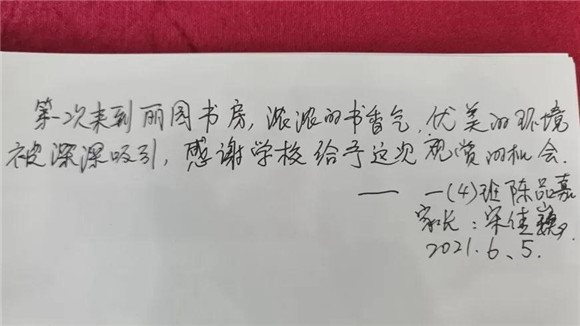 第一次来到丽园书房，浓浓的书香气，优美的环境
被深深吸引，感谢学校给予这次观赏的机会.
—— 一(4)班 陈品嘉
家长：宋佳巍
2021.6、5.